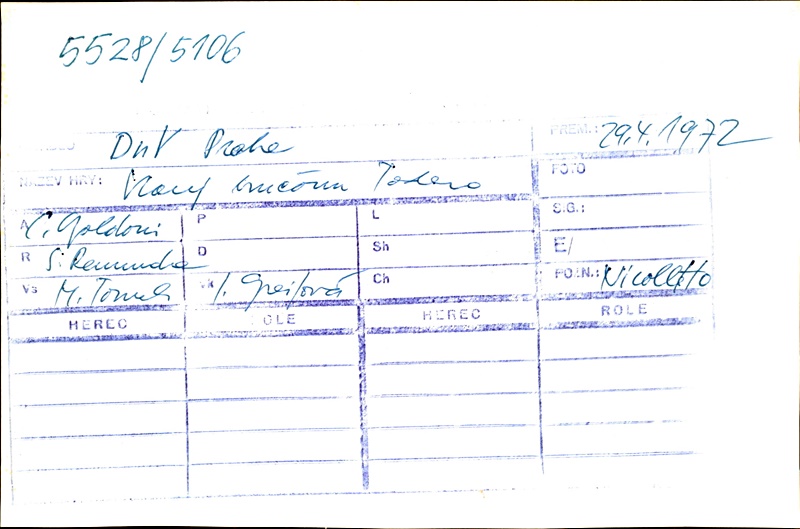 5528/5106
DNV Praha PREM.: 29.4.1972
NÁZEV HRY: Starý bručoun Todero FOTO
A C. Goldoni P L S.G.:
R S. Remunda D Sh E/
Vs M. Tomek Vk I. Greifová Ch POZN.: Nicolletto
HEREC OLE HEREC ROLE